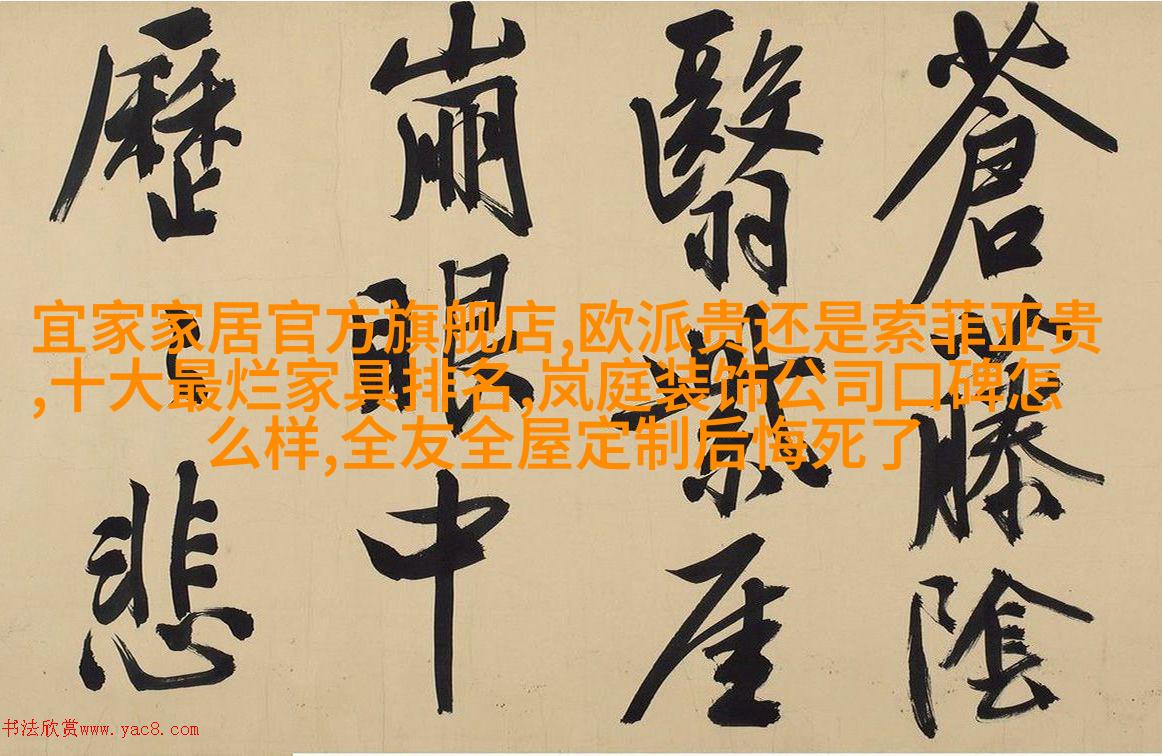 蒼藤陰
翳紫厓
崩眼中
歷〻悲
宜家家居官方旗舰店,欧派贵还是索菲亚贵
,十大最烂家具排名,岚庭装饰公司口碑怎
么样,全友全屋定制后悔死了
书法欣赏www.yac8.com